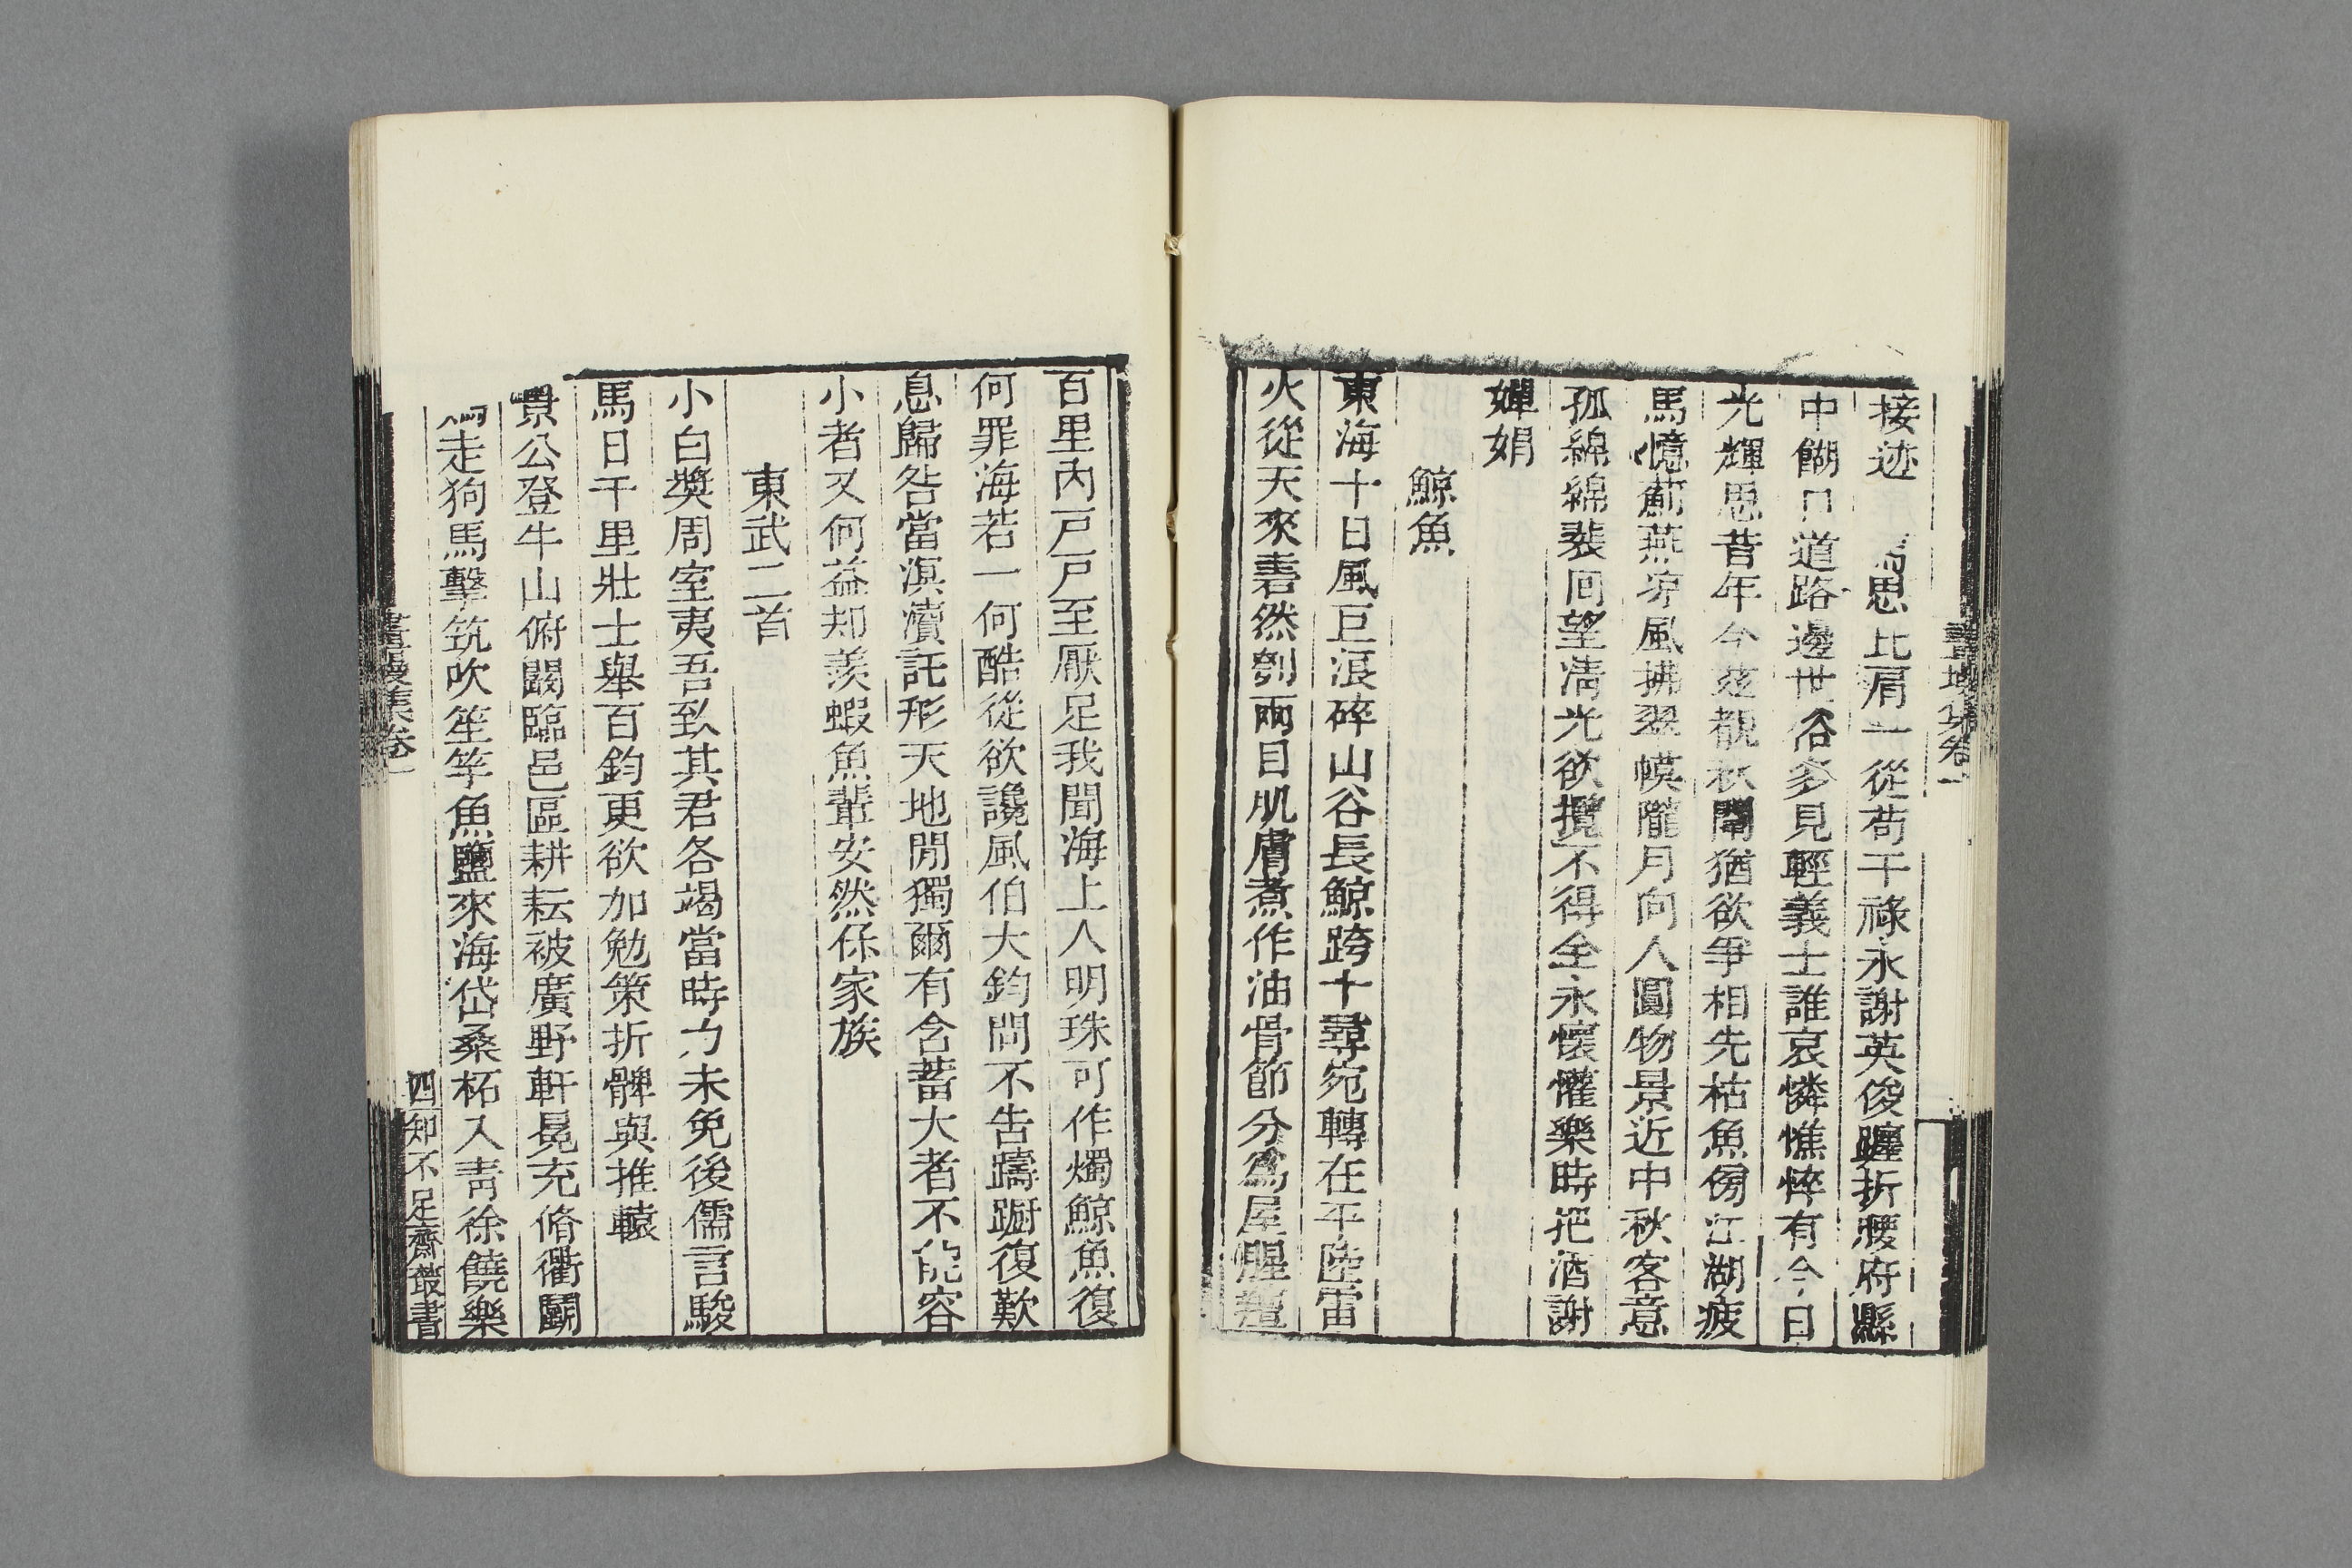 接迹 思比肩一從苟干祿永謝英俊躔折腰府縣
中餬口道路邊世俗多見輕義士誰哀憐憔悴有今日
光輝思昔年今茲覩秋闈猶欲爭相先枯魚傍江湖疲
馬憶薊燕涼風拂翠幙隴月向人圓物景近中秋客意
孤綿綿裴回望淸光欲攬不得全永懷懽樂時把酒謝
嬋娟
鯨魚
東海十日風巨浪碎山谷長鯨跨十尋宛轉在平陸雷
火從天來砉然刳兩目肌膚煮作油骨節分爲屋腥羶
百里內戸戸至厭足我聞海上人明珠可作燭鯨魚復
何罪海若一何酷從欲讒風伯大鈞問不告躊躕復歎
息歸咎當溟瀆託形天地閒獨爾有含蓄大者不能容
小者又何益却羨蝦魚輩安然保家族
東武二首
小白奬周室夷吾致其君各竭當時力未免後儒言駿
馬日千里壯士舉百鈞更欲加勉策折髀與推轅
景公登牛山俯闞臨邑區耕耘被廣野軒冕充脩衢鬬
走狗馬擊筑吹笙竽魚鹽來海岱桑柘入靑徐饒樂
畫墁集卷一
四
知不足齋叢書